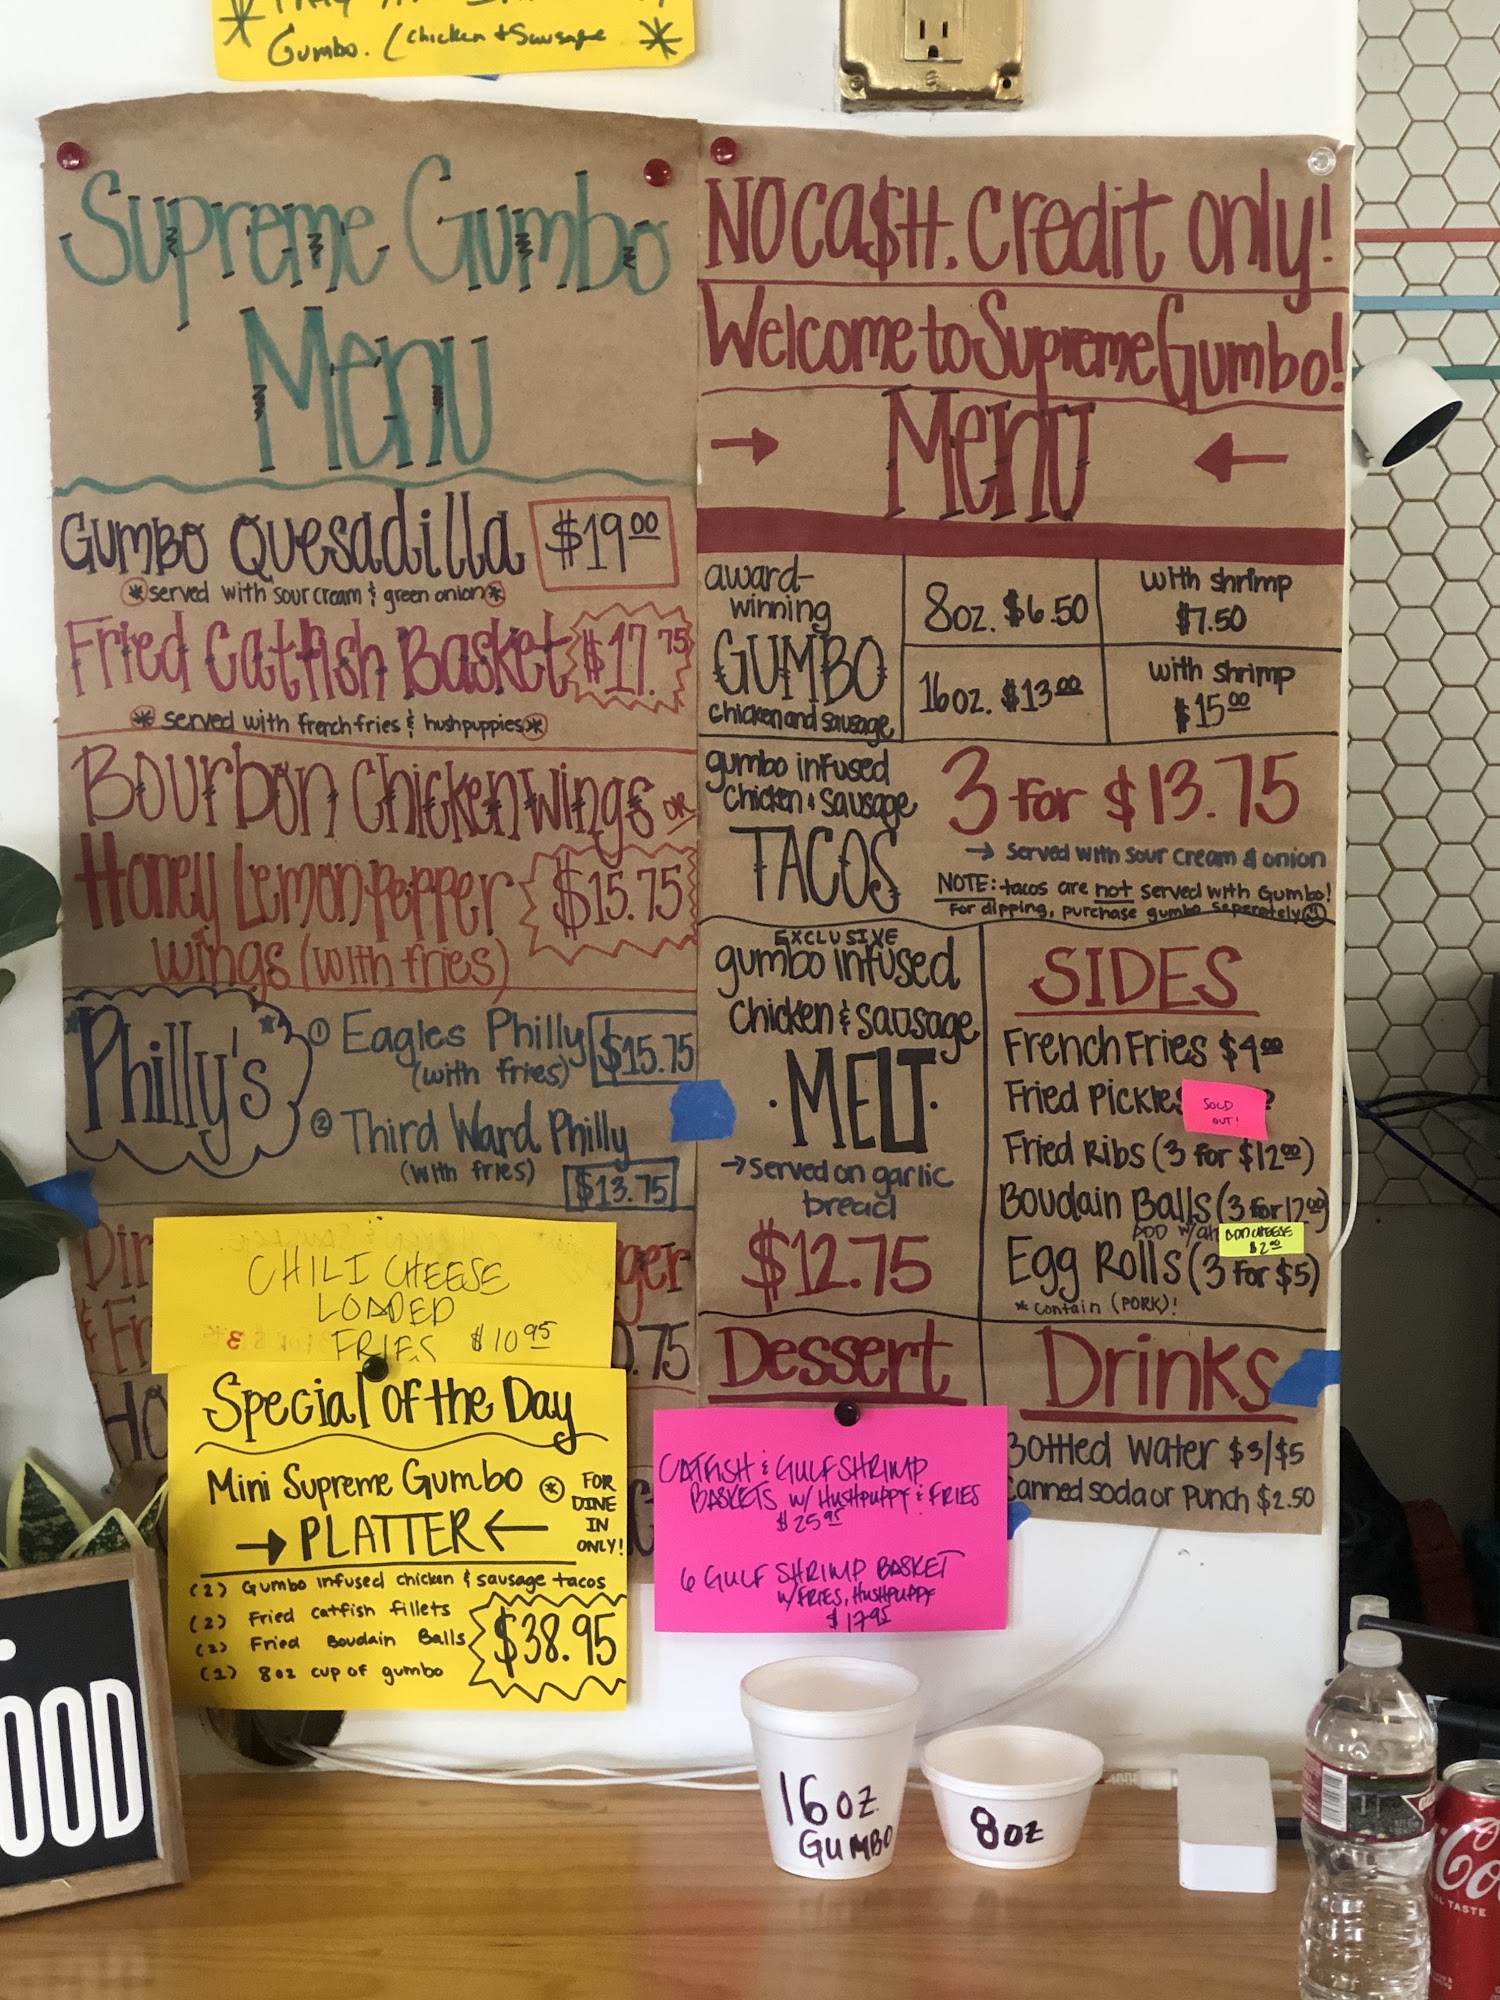 Gumbo. (chicken & Sausage
Supreme Gumbo
Menu
Gumbo Quesadilla $19.00
*served with sour cream & green onion*
Fried Catfish Basket $17.75
* served with french fries & hushpuppies*
Bourbon Chicken wings or
Honey Lemon Pepper $15.75
wings (with fries)
Philly's
① Eagles Philly $15.75
(with fries)
② Third Ward Philly
(with fries) $13.75
CHILI CHEESE
LOADED
FRIES $10.95
Special of the Day
Mini Supreme Gumbo * FOR
DINE
IN
ONLY!
→ PLATTER ←
(2) Gumbo infused chicken & sausage tacos
(2) Fried catfish fillets
(2) Fried Boudain Balls
(1) 8oz cup of gumbo
$38.95
NO CA$H. Credit only!
Welcome to Supreme Gumbo!
→ Menu ←
award-
winning
GUMBO
chicken and sausage
8oz. $6.50
with shrimp
$7.50
16oz. $13.00
with shrimp
$15.00
gumbo infused
chicken & sausage
TACOS
3 for $13.75
→ served with sour cream & onion
NOTE: tacos are not served with Gumbo!
For dipping, purchase gumbo seperately
EXCLUSIVE
gumbo infused
chicken & sausage
·MELT·
→served on garlic
bread
$12.75
SIDES
French Fries $4.00
Fried Pickles
SOLD
OUT!
Fried Ribs (3 for $12.00)
Boudain Balls (3 for 12.00)
ADD CHEESE
$2.00
Egg Rolls (3 for $5)
* contain (PORK)!
Dessert
CATFISH & GULF SHRIMP
BASKETS w/ HUSHPUPPY & FRIES
$25.95
6 GULF SHRIMP BASKET
w/FRIES, HUSHPUPPY
$17.95
Drinks
Bottled Water $3/$5
Canned soda or Punch $2.50
16oz
GUMBO
8oz
OOD